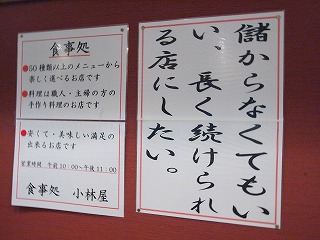 食事処
●50種類以上のメニューから
楽しく選べるお店です
●料理は職人・主婦の方の
手作り料理のお店です
●安くて・美味しい満足の
出来るお店です
営業時間 午前10:00～午後11:00
食事処 小林屋
儲からなくてもい
い、長く続けられ
る店にしたい。